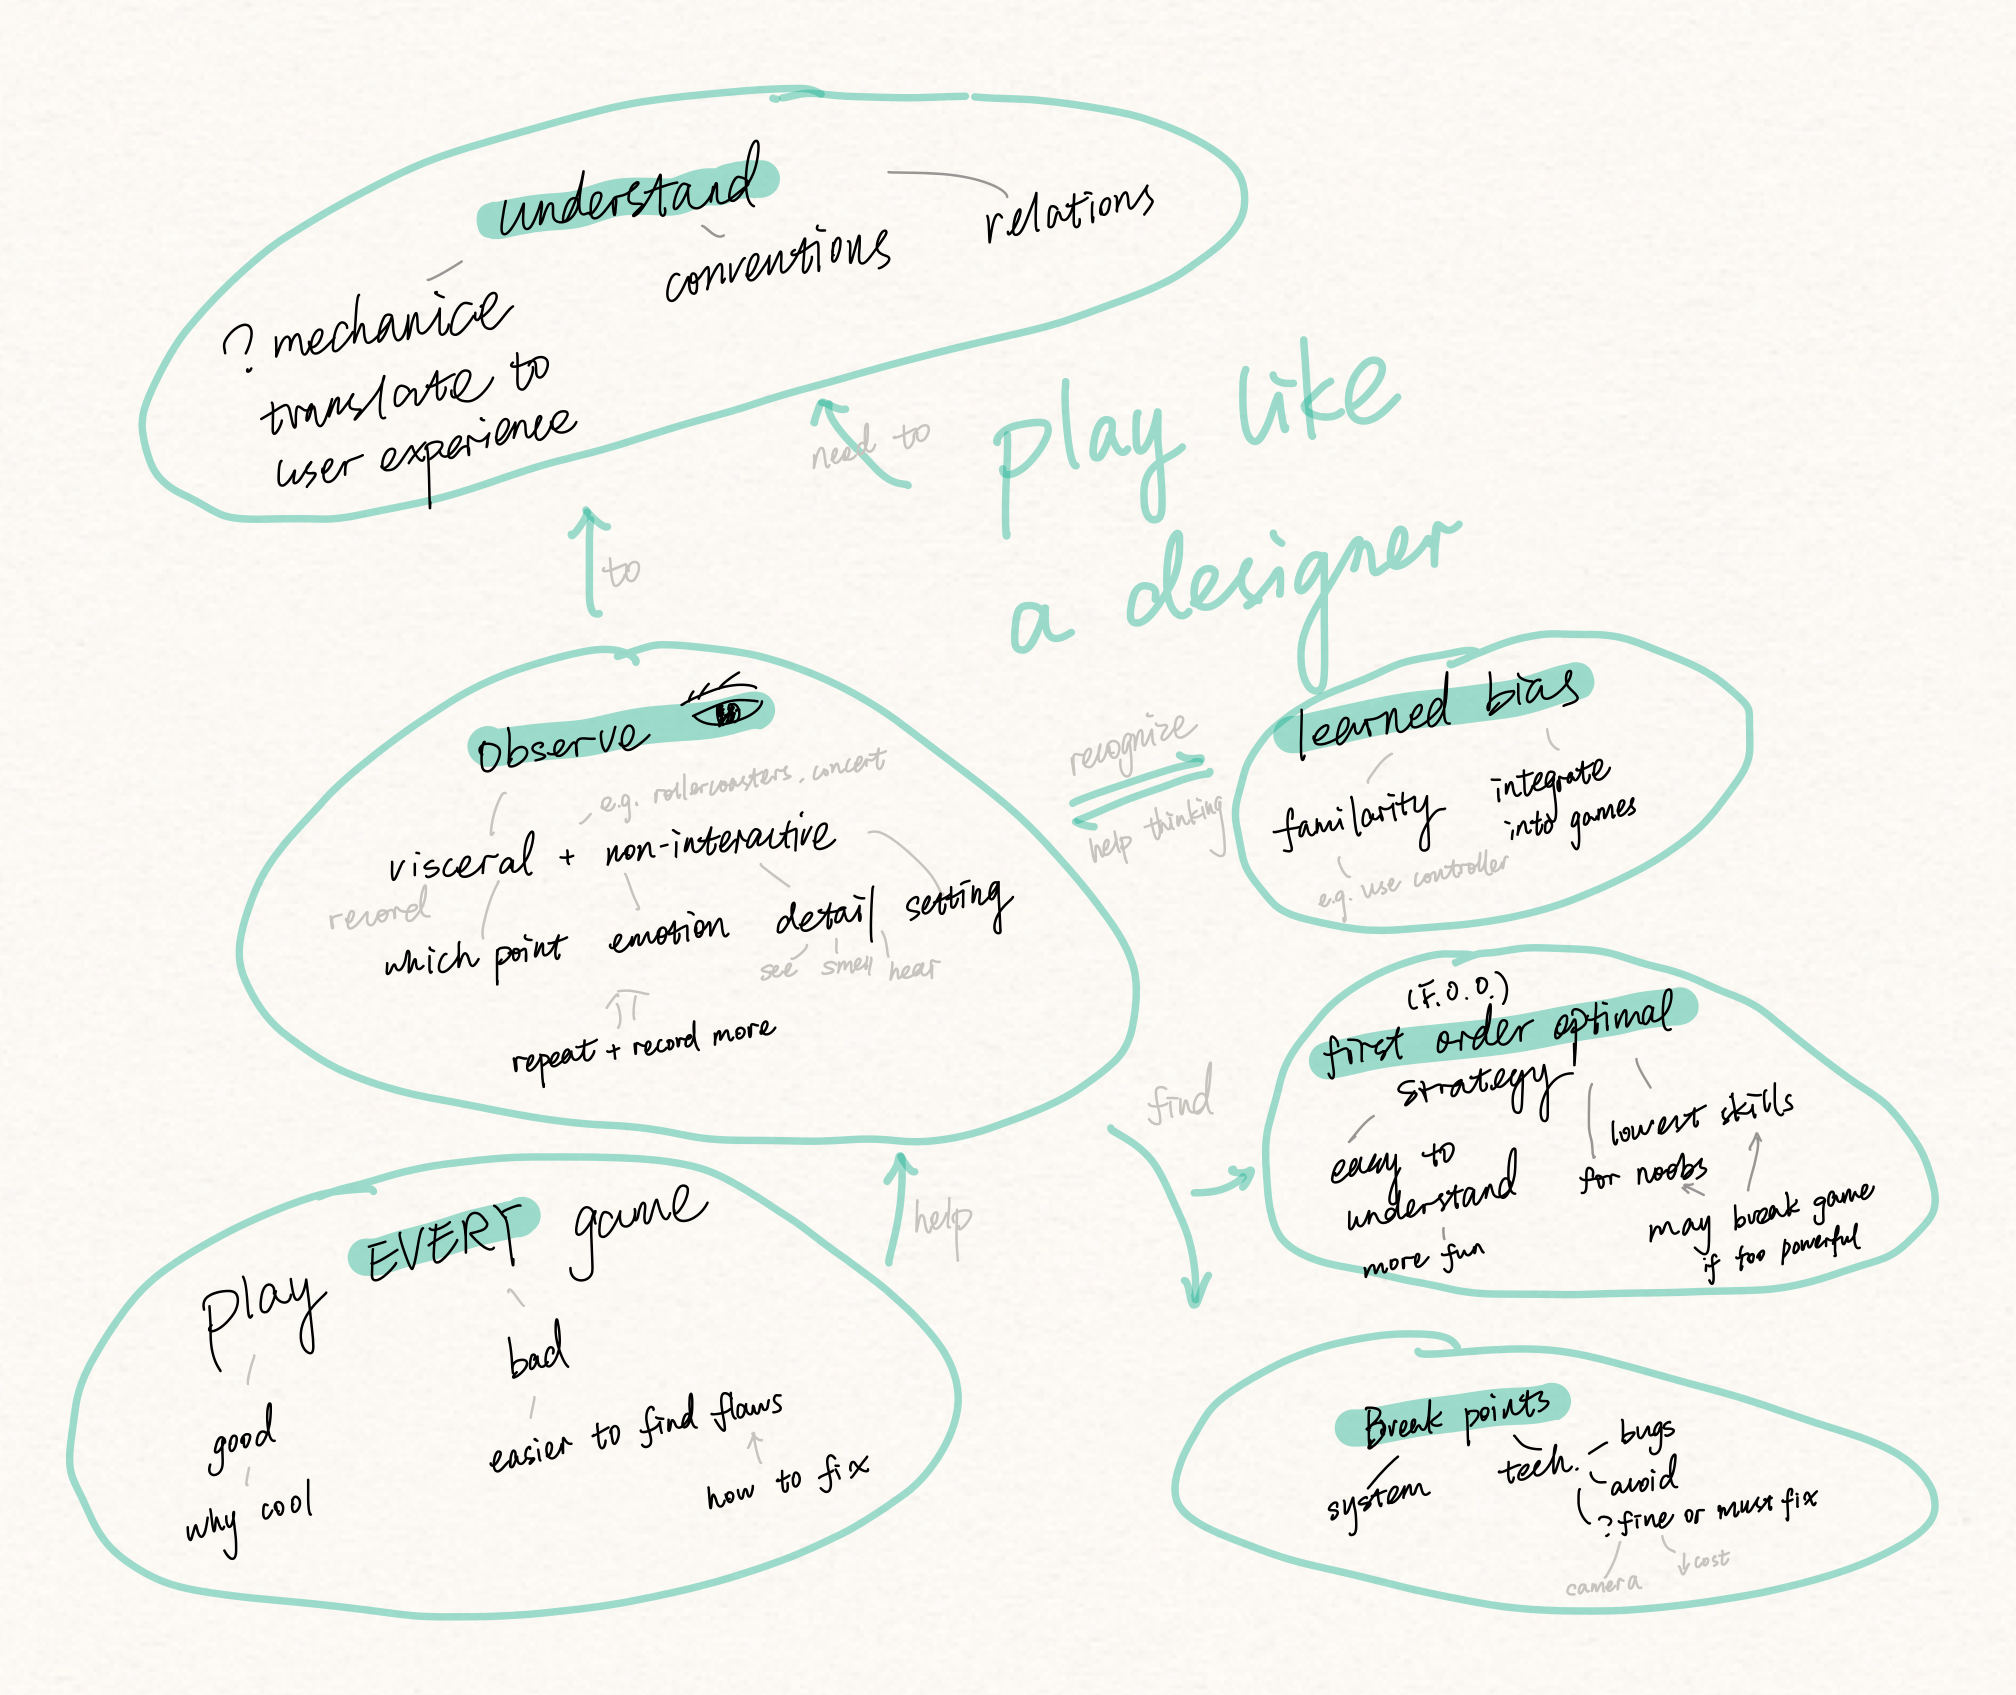 understand
relations
conventions
? mechanice
translate to
user experience
need to
play like
a designer
to
observe
e.g. rollercoasters, concert
visceral + non-interactive
record
which point emotion detail setting
see smell hear
repeat + record more
recognize
help thinking
learned bias
familarity
integrate
into games
e.g. use controller
find
(F.O.O.)
first order optimal
strategy
easy to
understand
more fun
lowest skills
for noobs
may break game
if too powerful
help
play EVERY game
good
why cool
bad
easier to find flaws
how to fix
Break points
system
tech.
bugs
avoid
? fine or must fix
camera
↓ cost